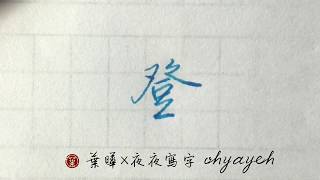 登
葉曄×夜夜寫字 ohyayeh